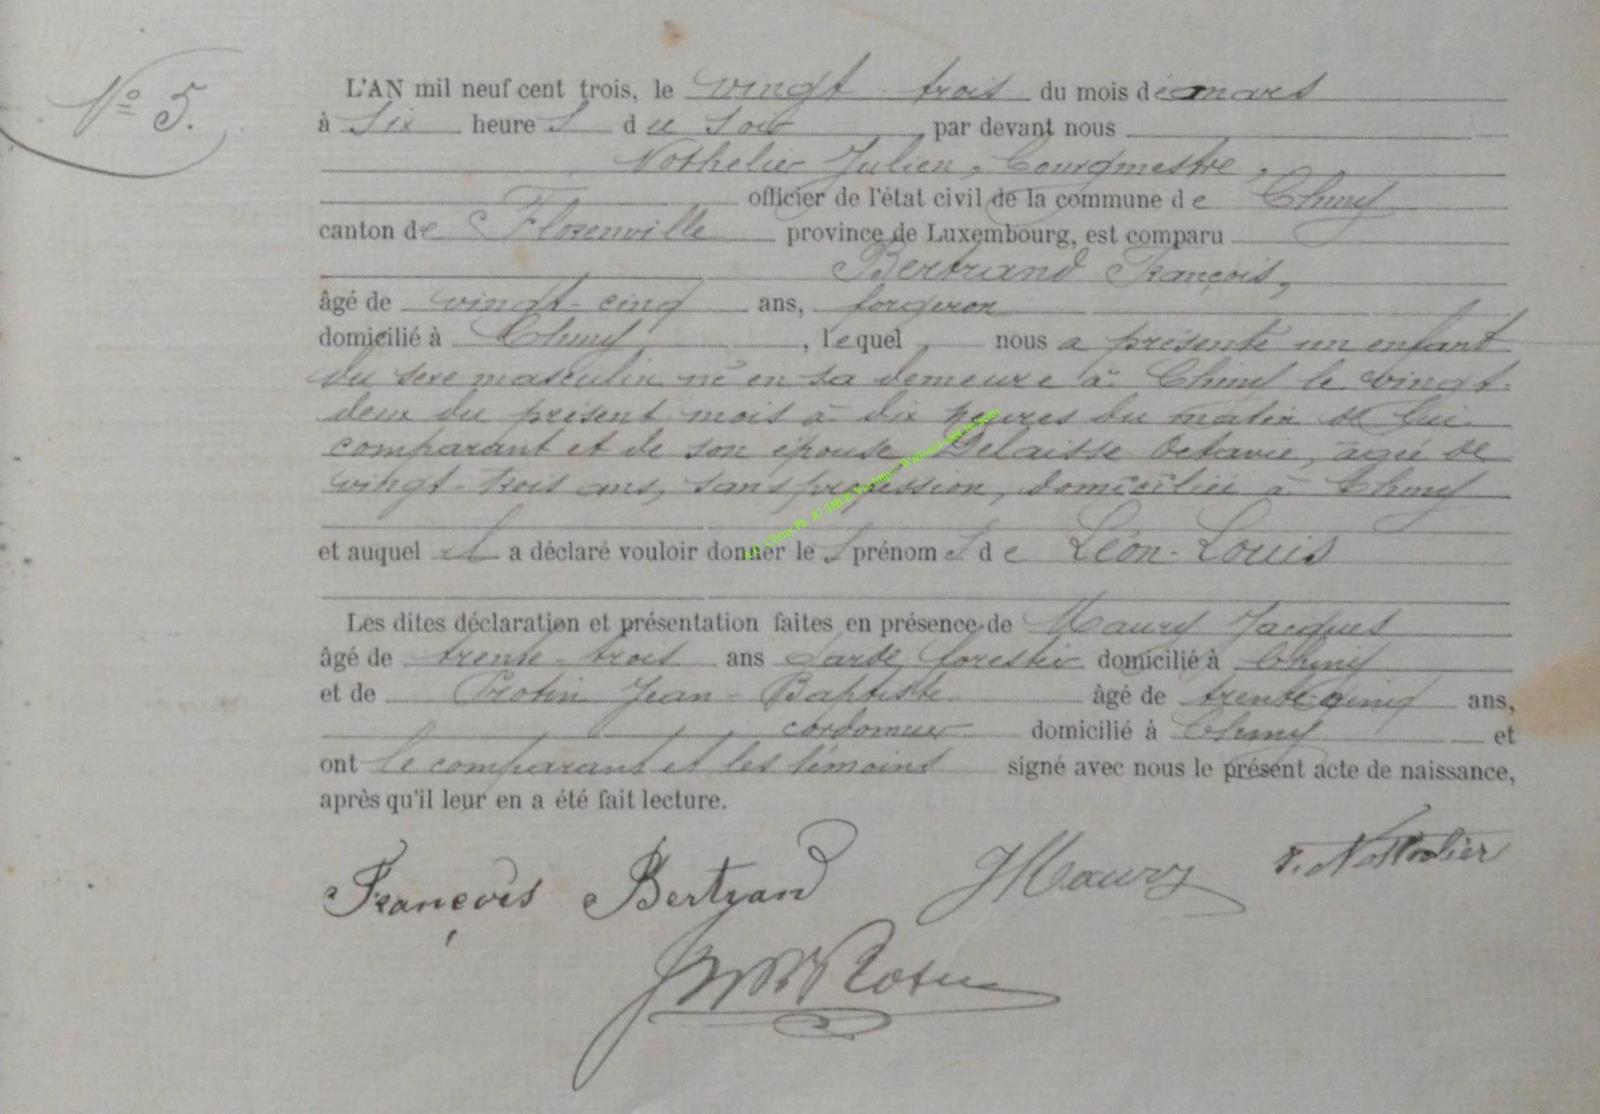 N° 5.
L'AN mil neuf cent trois, le vingt-trois du mois de mars
à six heures du soir, par devant nous
Nothelier Julien, bourgmestre,
officier de l'état civil de la commune de Chiny
canton de Florenville province de Luxembourg, est comparu
Bertrand François,
âgé de vingt-cinq ans, forgeron
domicilié à Chiny, lequel nous a présenté un enfant
du sexe masculin né en sa demeure à Chiny le vingt-
deux du présent mois à dix heures du matin de lui
comparant et de son épouse Delaisse Octavie, âgée de
vingt-trois ans, sans profession, domiciliée à Chiny
et auquel il a déclaré vouloir donner les prénoms de Léon-Louis
Les dites déclaration et présentation faites en présence de Maury Jacques
âgé de trente-trois ans garde forestier domicilié à Chiny
et de Rotin Jean-Baptiste âgé de trente-cinq ans,
cordonnier domicilié à Chiny et
ont le comparant et les témoins signé avec nous le présent acte de naissance,
après qu'il leur en a été fait lecture.
François Bertrand JMaury J. Nothelier
Rotin